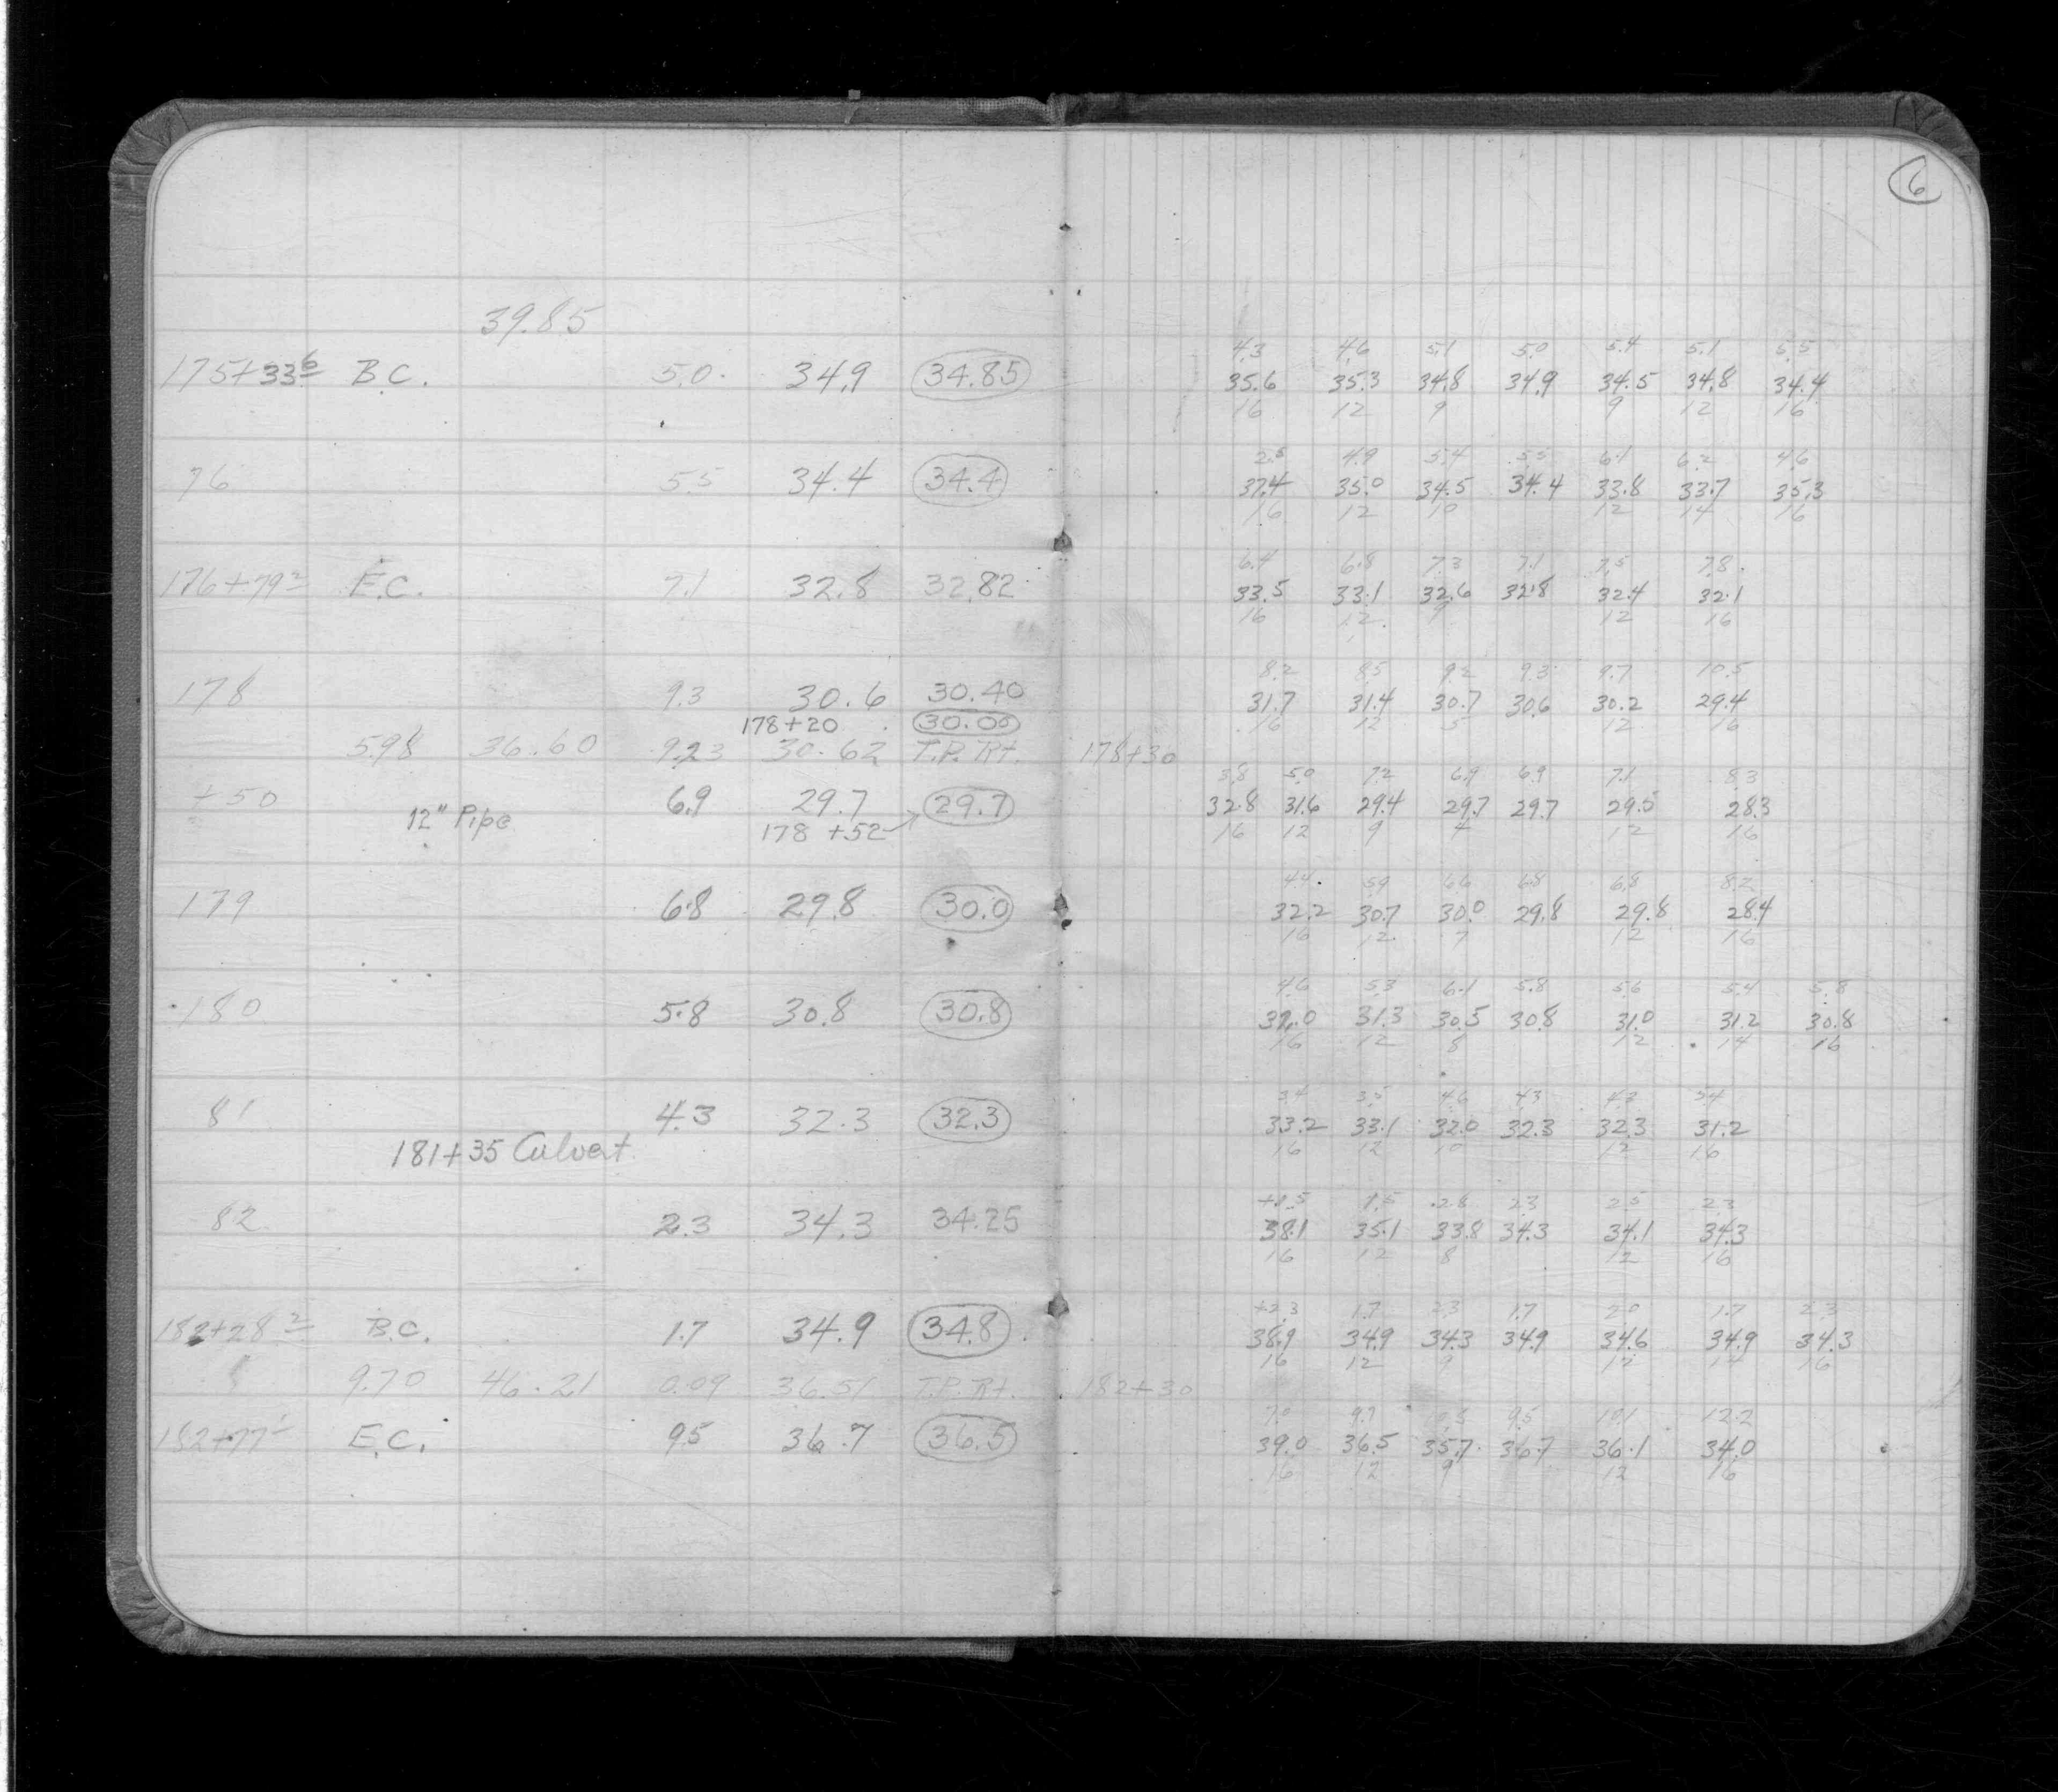 6
39.85
4.3 4.6 5.1 5.0 5.4 5.1 5.5
175+33⁶ B.C. 5.0 34.9 34.85 35.6 35.3 34.8 34.9 34.5 34.8 34.4
16 12 9 9 12 16
2.5 4.9 5.4 5.5 6.1 6.2 4.6
76 5.5 34.4 34.4 37.4 35.0 34.5 34.4 33.8 33.7 35.3
16 12 10 12 14 16
6.4 6.8 7.3 7.1 7.5 7.8
176+79² E.C. 7.1 32.8 32.82 33.5 33.1 32.6 32.8 32.4 32.1
16 12 9 12 16
8.2 8.5 9.2 9.3 9.7 10.5
178 9.3 30.6 30.40 31.7 31.4 30.7 30.6 30.2 29.4
178+20 30.00 16 12 5 12 16
5.98 36.60 9.23 30.62 T.P. Rt. 178+30
3.8 5.0 7.2 6.9 6.9 7.1 8.3
+50 12" Pipe 6.9 29.7 29.7 32.8 31.6 29.4 29.7 29.7 29.5 28.3
178+52 16 12 9 4 12 16
4.4 5.9 6.6 6.8 6.8 8.2
179 6.8 29.8 30.0 32.2 30.7 30.0 29.8 29.8 28.4
16 12 7 12 16
4.6 5.3 6.1 5.8 5.6 5.4 5.8
180 5.8 30.8 30.8 32.0 31.3 30.5 30.8 31.0 31.2 30.8
16 12 8 12 14 16
3.4 3.5 4.6 4.3 4.3 5.4
81 4.3 32.3 32.3 33.2 33.1 32.0 32.3 32.3 31.2
181+35 Culvert 16 12 10 12 16
+1.5 1.5 2.8 2.3 2.5 2.3
82 2.3 34.3 34.25 38.1 35.1 33.8 34.3 34.1 34.3
16 12 8 12 16
+2.3 1.7 2.3 1.7 2.0 1.7 2.3
182+28² B.C. 1.7 34.9 34.8 38.9 34.9 34.3 34.9 34.6 34.9 34.3
16 12 9 12 14 16
9.70 46.21 0.09 36.51 T.P. Rt. 182+30
9.7 9.5 10.1 12.2
182+77 E.C. 9.5 36.7 36.5 39.0 36.5 35.7 36.7 36.1 34.0
16 12 9 12 16